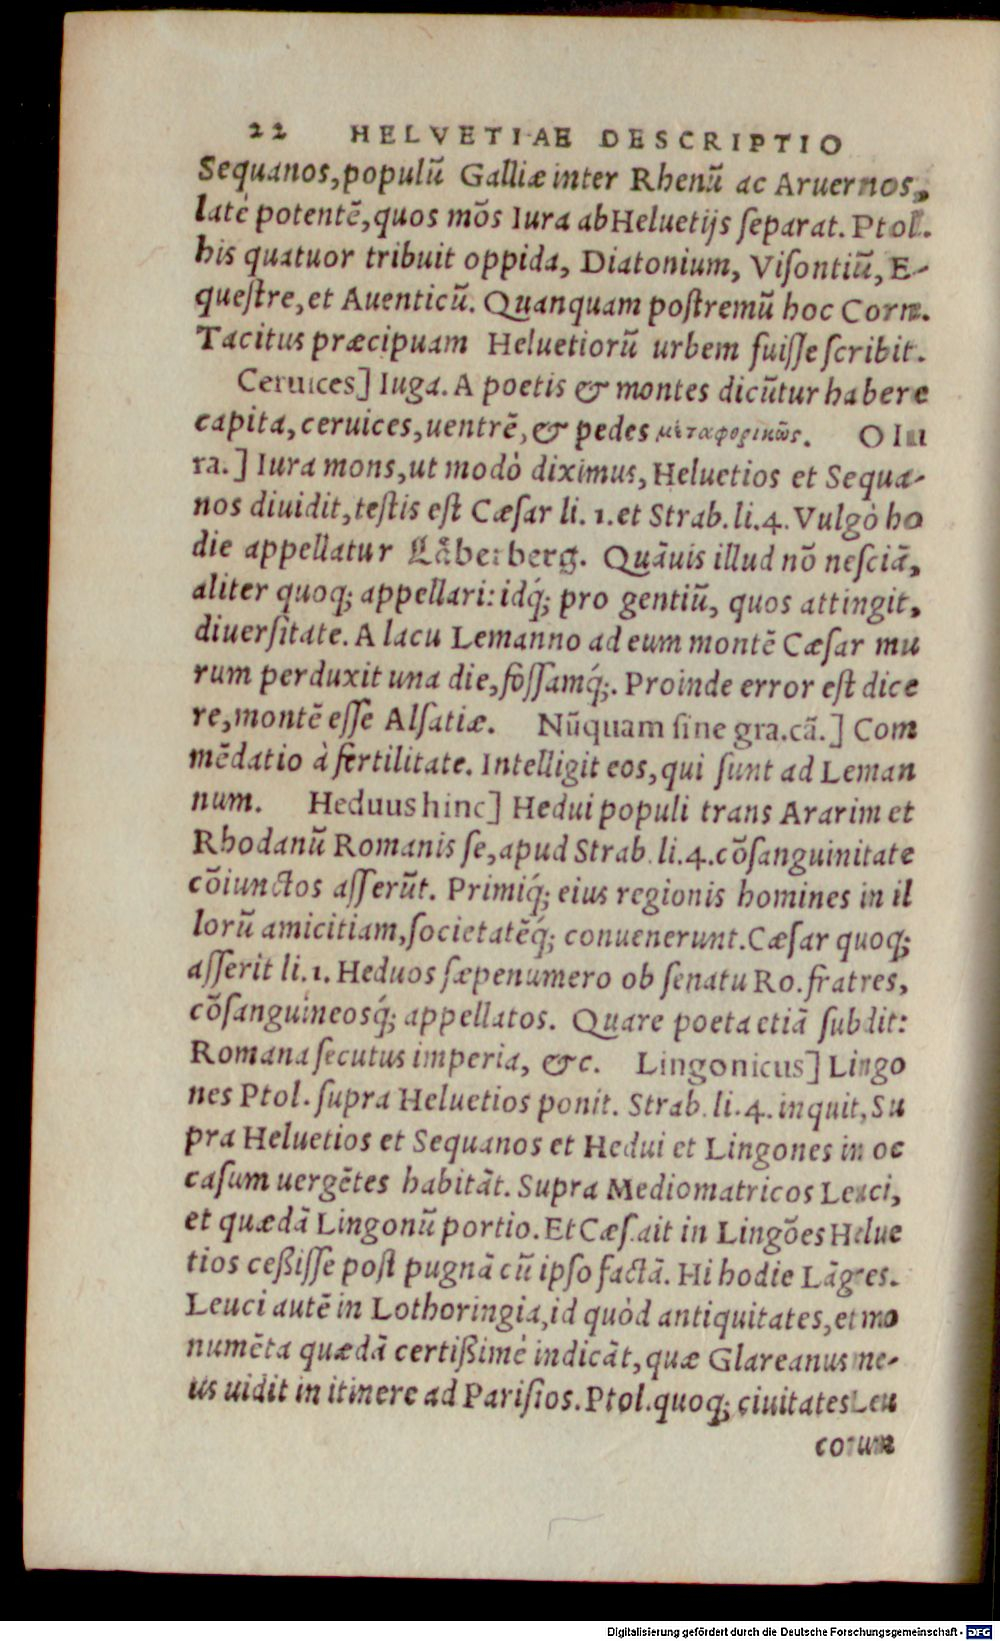 22 HELVETIAE DESCRIPTIO
Sequanos, populũ Galliæ inter Rhenũ ac Aruernos,
latè potentẽ, quos mõs Iura ab Heluetijs ſeparat. Ptol.
his quatuor tribuit oppida, Diatonium, Viſontiũ, E-
queſtre, et Auenticũ. Quanquam poſtremũ hoc Corn.
Tacitus præcipuam Heluetiorũ urbem fuiſſe ſcribit.
Ceruices] Iuga. A poetis & montes dicũtur habere
capita, ceruices, uentrẽ, & pedes μεταφορικῶς. O Iu
ra.] Iura mons, ut modò diximus, Heluetios et Sequa-
nos diuidit, teſtis eſt Cæſar li. 1. et Strab. li. 4. Vulgò ho
die appellatur Låberberg. Quãuis illud nõ neſciã,
aliter quoq; appellari: idq́; pro gentiũ, quos attingit,
diuerſitate. A lacu Lemanno ad eum montẽ Cæſar mu
rum perduxit una die, foſſamq́;. Proinde error eſt dice
re, montẽ eſſe Alſatiæ. Nũquam ſine gra. cã.] Com
mẽdatio à fertilitate. Intelligit eos, qui ſunt ad Leman
num. Heduus hinc] Hedui populi trans Ararim et
Rhodanũ Romanis ſe, apud Strab. li. 4. cõſanguinitate
cõiunctos aſſerũt. Primiq́; eius regionis homines in il
lorũ amicitiam, ſocietatẽq́; conuenerunt. Cæſar quoq;
aſſerit li. 1. Heduos ſæpenumero ob ſenatu Ro. fratres,
cõſanguineosq́; appellatos. Quare poeta etiã ſubdit:
Romana ſecutus imperia, &c. Lingonicus] Lingo
nes Ptol. ſupra Heluetios ponit. Strab. li. 4. inquit, Su
pra Heluetios et Sequanos et Hedui et Lingones in oc
caſum uergẽtes habitãt. Supra Mediomatricos Leuci,
et quædã Lingonũ portio. Et Cæſ. ait in Lingões Helue
tios ceßiſſe poſt pugnã cũ ipſo factã. Hi hodie Lãgres.
Leuci autẽ in Lothoringia, id quòd antiquitates, et mo
numẽta quædã certißimè indicãt, quæ Glareanus me-
us uidit in itinere ad Pariſios. Ptol. quoq; ciuitates Leu
corum
Digitalisierung gefördert durch die Deutsche Forschungsgemeinschaft - DFG